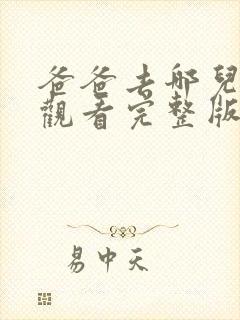 爸爸去哪兒
觀看完整版
易中天